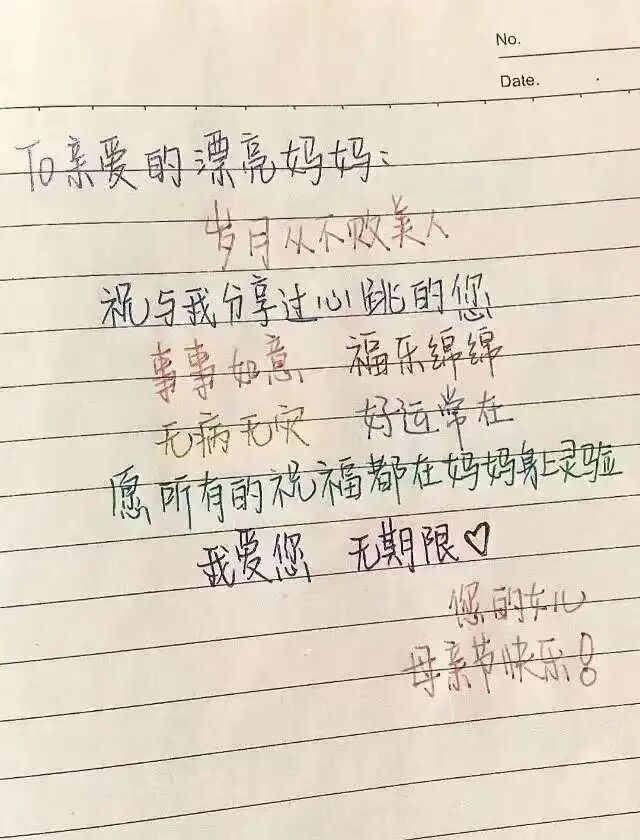 No.
Date.
To亲爱的漂亮妈妈:
岁月从不败美人
祝与我分享过心跳的您
事事如意 福乐绵绵
无病无灾 好运常在
愿所有的祝福都在妈妈身上灵验
我爱您 无期限♡
您的女儿
母亲节快乐!